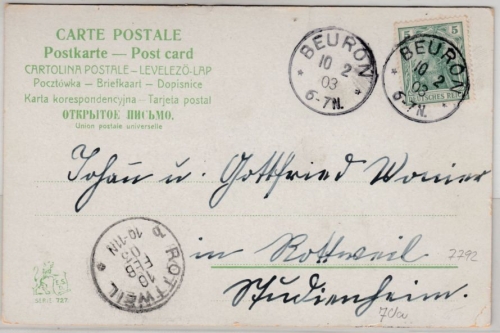 CARTE POSTALE
Postkarte — Post card
CARTOLINA POSTALE – LEVELEZÖ-LAP
Pocztówka – Briefkaart – Dopisnice
Karta korespondencyjna – Tarjeta postal
ОТКРЫТОЕ ПИСЬМО.
Union postale universelle
BEURON
10 2
03
6-7N.
5 5
BEURON
10 2
03
6-7N.
DEUTSCHES REICH
Johan u. Gottfried Wonier
in Rottweil
Studienheim.
ROTTWEIL
10
FEB
03
10-11N
b
7292
SERIE 727